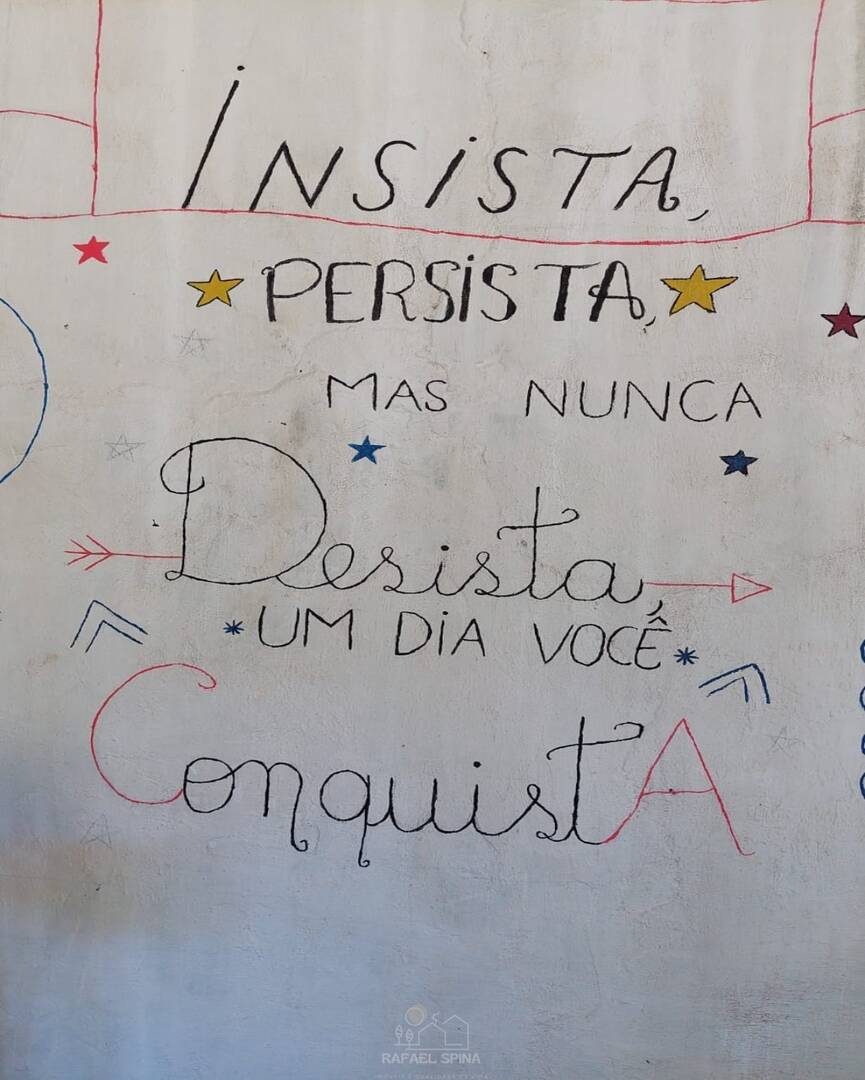 INSISTA,
PERSISTA,
MAS NUNCA
Desista,
UM DIA VOCÊ
ConquistA
RAFAEL SPINA